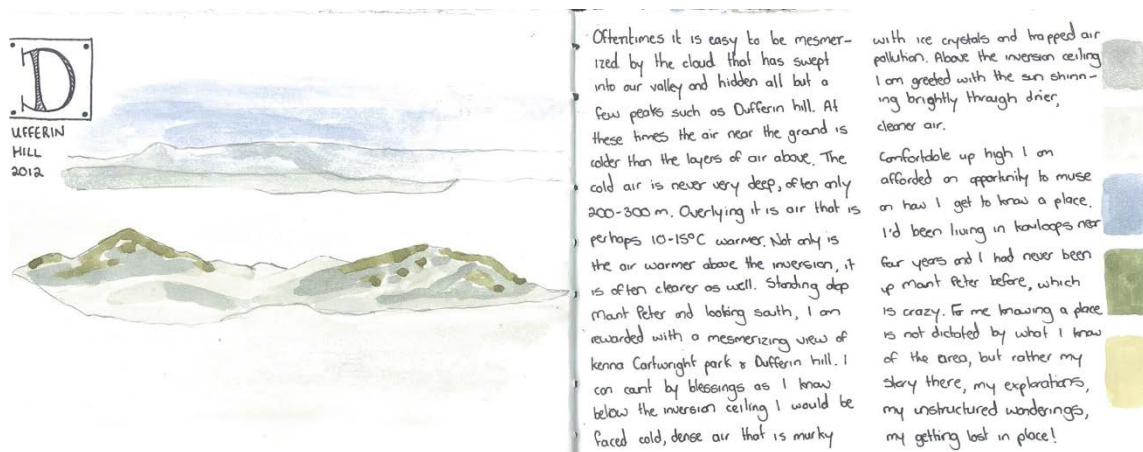 D
UFFERIN
HILL
2012
Oftentimes it is easy to be mesmer-
ized by the cloud that has swept
into our valley and hidden all but a
few peaks such as Dufferin hill. At
these times the air near the ground is
colder than the layers of air above. The
cold air is never very deep, often only
200-300 m. Overlying it is air that is
perhaps 10-15°C warmer. Not only is
the air warmer above the inversion, it
is often clearer as well. Standing atop
mount Peter and looking south, I am
rewarded with a mesmerizing view of
kenna Cartwright park & Dufferin hill. I
can count by blessings as I know
below the inversion ceiling I would be
faced cold, dense air that is murky
with ice crystals and trapped air
pollution. Above the inversion ceiling
I am greeted with the sun shinn-
ing brightly through drier,
cleaner air.
Comfortable up high I am
afforded an opportunity to muse
on how I get to know a place.
I'd been living in kamloops near
four years and I had never been
up mount Peter before, which
is crazy. For me knowing a place
is not dictated by what I know
of the area, but rather my
story there, my explorations,
my unstructured wanderings,
my getting lost in place!